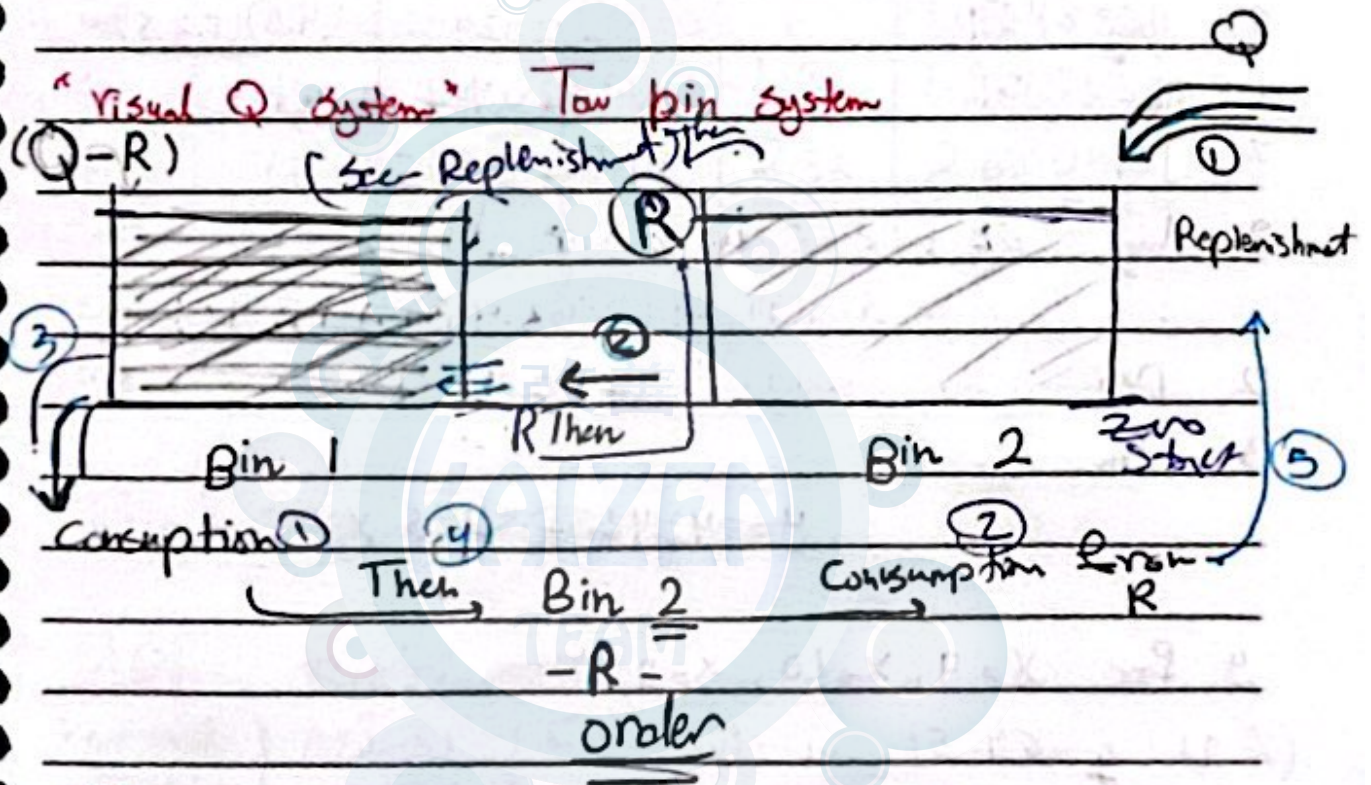 Q
"Visual Q system" Tow bin system
(Q-R)
Replenishment) then
①
R
Replenishmet
③
②
R Then
Bin 1
Bin 2
Zero
⑤
Consuption ①
④
②
Then
Bin 2
Consumption from
R
-R-
order
KAIZEN
TEAM